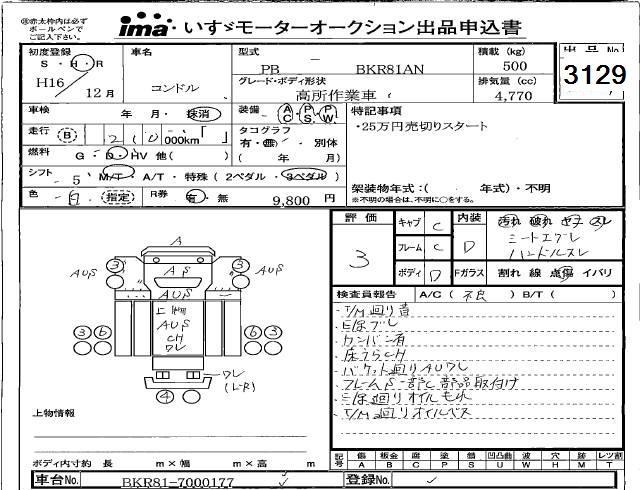 ㊟赤太枠内は必ず
ボールペンで
ご記入下さい。
ima いすゞモーターオークション出品申込書
初度登録 車名 型式 積載 (kg) 出品No
S・H・R コンドル PB － BKR81AN 500 3129
H16 12月 グレード・ボディ形状 高所作業車 排気量 (cc) 4,770
車検 年 月・抹消 装備 AC PS PW 特記事項
・25万円売切りスタート
走行 B 210 000km タコグラフ 有・無・別体
燃料 G・D・HV 他( ) ( 年 月)
シフト 5 M/T・A/T・特殊 (2ペダル・3ペダル) 架装物年式:( 年式)・不明
色 白 (指定) R券 有・無 9,800 円 ※不明の場合は、不明に○をする。
評価 3
キャブ C 内装 D 汚れ 破れ コゲ スレ
フレーム C シートエグレ
ハンドルスレ
ボディ D Fガラス 割れ 線 点傷 イバリ
検査員報告 A/C (不良) B/T ( )
・T/M廻り音
・E床ブレ
・ワンバン有
・床うらCH
・バケット廻りAUワレ
・フレームS一部C部品取付け
・E床廻りオイルもれ
・T/M廻りオイルベス
A
3 3
AUS AS AUS
AUS
上物
AUS
CH
ワレ
3 6 6 3
ワレ
(L・R)
4
上物情報
ボディ内寸約 長 m×幅 m×高 m
記号 傷 板金 腐 塗 錆 凹凸曲 波 穴 跡 レツ割
A B C P S U W H M T
車台No. BKR81-7000177 登録No.